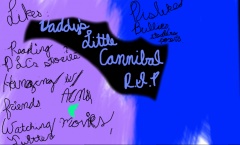 Likes
Reading
DLCs stories
Hanging w/
friends
Watching movies,
Daddys
Little
Cannibal
R.I.P
Dislikes
Bullies